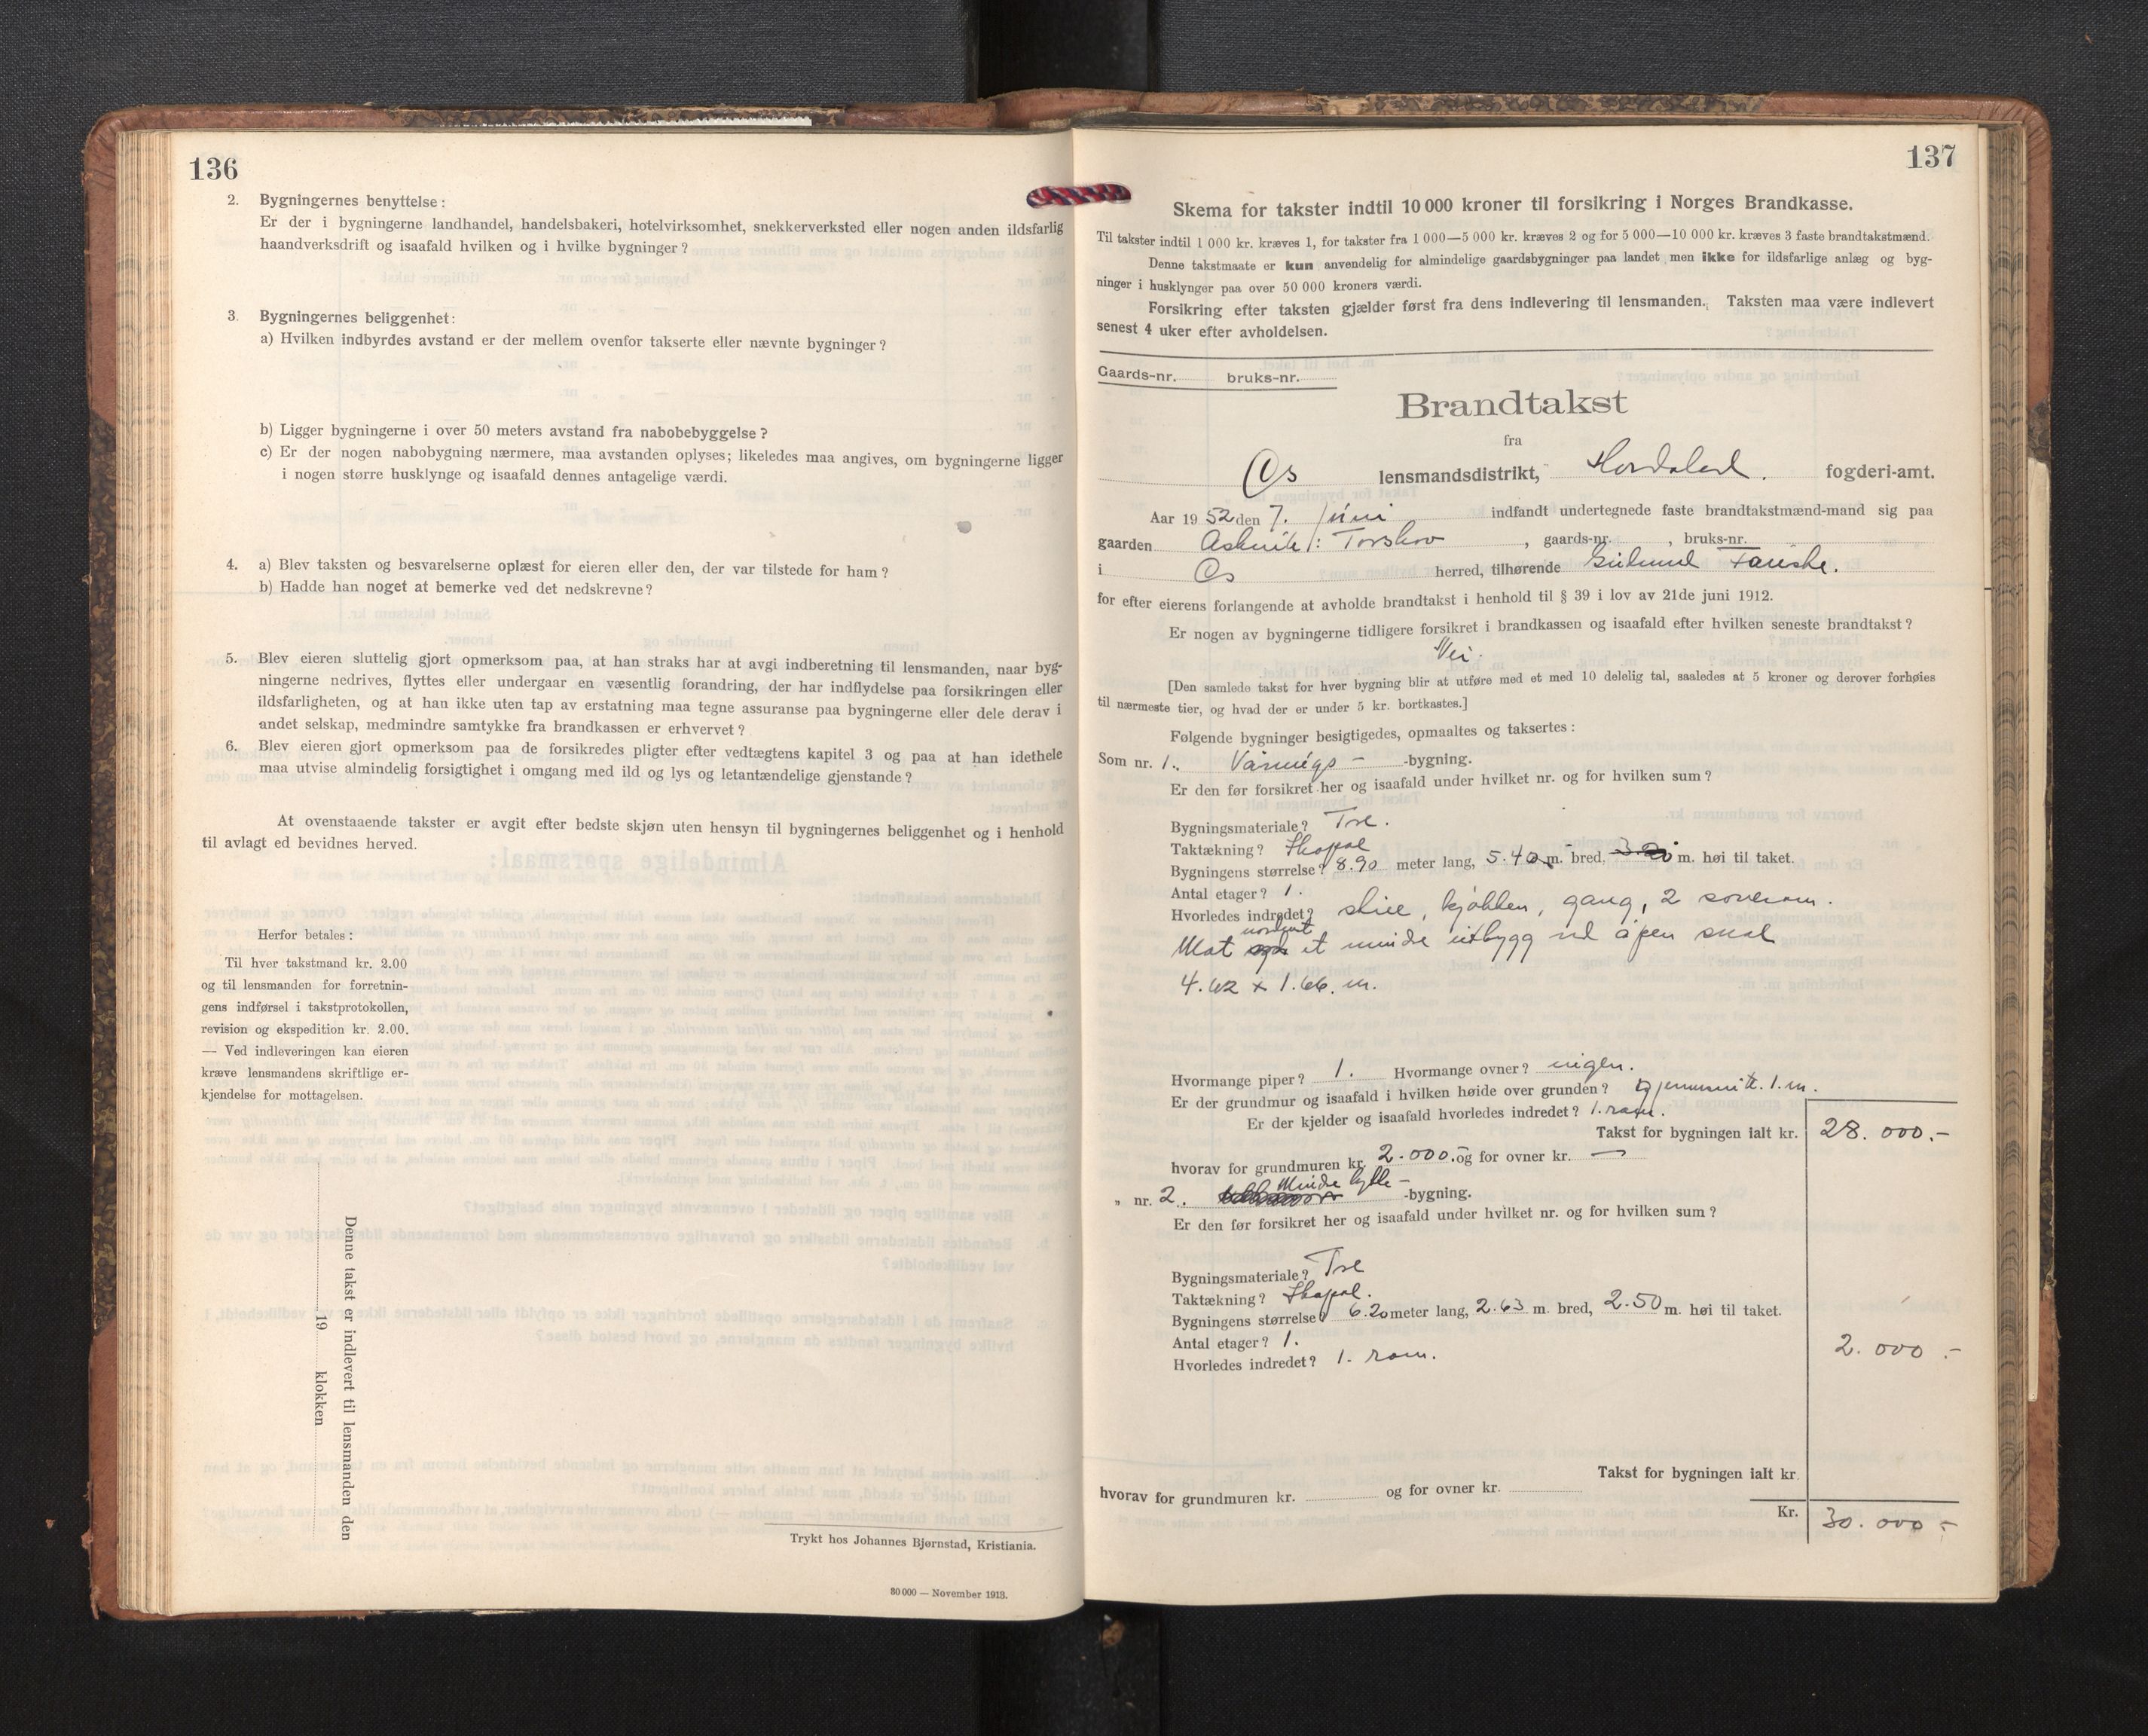 136
2. Bygningernes benyttelse:
Er der i bygningerne landhandel, handelsbakeri, hotelvirksomhet, snekkerverksted eller nogen anden ildsfarlig
haandverksdrift og isaafald hvilken og i hvilke bygninger?
3. Bygningernes beliggenhet:
a) Hvilken indbyrdes avstand er der mellem ovenfor takserte eller nævnte bygninger?
b) Ligger bygningerne i over 50 meters avstand fra nabobebyggelse?
c) Er der nogen nabobygning nærmere, maa avstanden oplyses; likeledes maa angives, om bygningerne ligger
i nogen større husklynge og isaafald dennes antagelige værdi.
4. a) Blev taksten og besvarelserne oplæst for eieren eller den, der var tilstede for ham?
b) Hadde han noget at bemerke ved det nedskrevne?
5. Blev eieren sluttelig gjort opmerksom paa, at han straks har at avgi indberetning til lensmanden, naar byg-
ningerne nedrives, flyttes eller undergaar en væsentlig forandring, der har indflydelse paa forsikringen eller
ildsfarligheten, og at han ikke uten tap av erstatning maa tegne assuranse paa bygningerne eller dele derav i
andet selskap, medmindre samtykke fra brandkassen er erhvervet?
6. Blev eieren gjort opmerksom paa de forsikredes pligter efter vedtægtens kapitel 3 og paa at han idethele
maa utvise almindelig forsigtighet i omgang med ild og lys og letantændelige gjenstande?
At ovenstaaende takster er avgit efter bedste skjøn uten hensyn til bygningernes beliggenhet og i henhold
til avlagt ed bevidnes herved.
Herfor betales:
Til hver takstmand kr. 2.00
og til lensmanden for forretnin-
gens indførsel i takstprotokollen,
revision og ekspedition kr. 2.00.
— Ved indleveringen kan eieren
kræve lensmandens skriftlige er-
kjendelse for mottagelsen.
Denne takst er indlevert til lensmanden den
19 klokken
Trykt hos Johannes Bjørnstad, Kristiania.
30 000 — November 1913.
137
Skema for takster indtil 10 000 kroner til forsikring i Norges Brandkasse.
Til takster indtil 1 000 kr. kræves 1, for takster fra 1 000—5 000 kr. kræves 2 og for 5 000—10 000 kr. kræves 3 faste brandtakstmænd.
Denne takstmaate er kun anvendelig for almindelige gaardsbygninger paa landet men ikke for ildsfarlige anlæg og byg-
ninger i husklynger paa over 50 000 kroners værdi.
Forsikring efter taksten gjælder først fra dens indlevering til lensmanden. Taksten maa være indlevert
senest 4 uker efter avholdelsen.
Gaards-nr. bruks-nr.
Brandtakst
fra
Os lensmandsdistrikt, Hordaland. fogderi-amt.
Aar 1952 den 7. juni indfandt undertegnede faste brandtakstmænd-mand sig paa
gaarden Askvik /: Torskov, gaards-nr. , bruks-nr.
i Os herred, tilhørende Gudmund
for efter eierens forlangende at avholde brandtakst i henhold til § 39 i lov av 21de juni 1912.
Er nogen av bygningerne tidligere forsikret i brandkassen og isaafald efter hvilken seneste brandtakst?
Nei.
[Den samlede takst for hver bygning blir at utføre med et med 10 delelig tal, saaledes at 5 kroner og derover forhøies
til nærmeste tier, og hvad der er under 5 kr. bortkastes.]
Følgende bygninger besigtigedes, opmaaltes og taksertes:
Som nr. 1. Vånings- -bygning.
Er den før forsikret her og isaafald under hvilket nr. og for hvilken sum?
Bygningsmateriale? Tre.
Taktækning?
Bygningens størrelse? 8.90 meter lang, 5.40 m. bred, m. høi til taket.
Antal etager? 1.
Hvorledes indredet? stue, kjøkken, gang, 2 soverom.
Mot et mindre utbygg ved åpen sval
4.42 x 1.66. m.
Hvormange piper? 1. Hvormange ovner? ingen.
Er der grundmur og isaafald i hvilken høide over grunden? gjennomsnitt. 1. m.
Er der kjelder og isaafald hvorledes indredet? 1. rom.
Takst for bygningen ialt kr. 28.000.-
hvorav for grundmuren kr. 2.000. og for ovner kr. —
" nr. 2. Mindre hytte- -bygning.
Er den før forsikret her og isaafald under hvilket nr. og for hvilken sum?
Bygningsmateriale? Tre
Taktækning?
Bygningens størrelse? 6.20 meter lang, 2.63 m. bred, 2.50 m. høi til taket.
Antal etager? 1.
Hvorledes indredet? 1. rom.
2.000.-
Takst for bygningen ialt kr.
hvorav for grundmuren kr. og for ovner kr.
Kr. 30.000.-